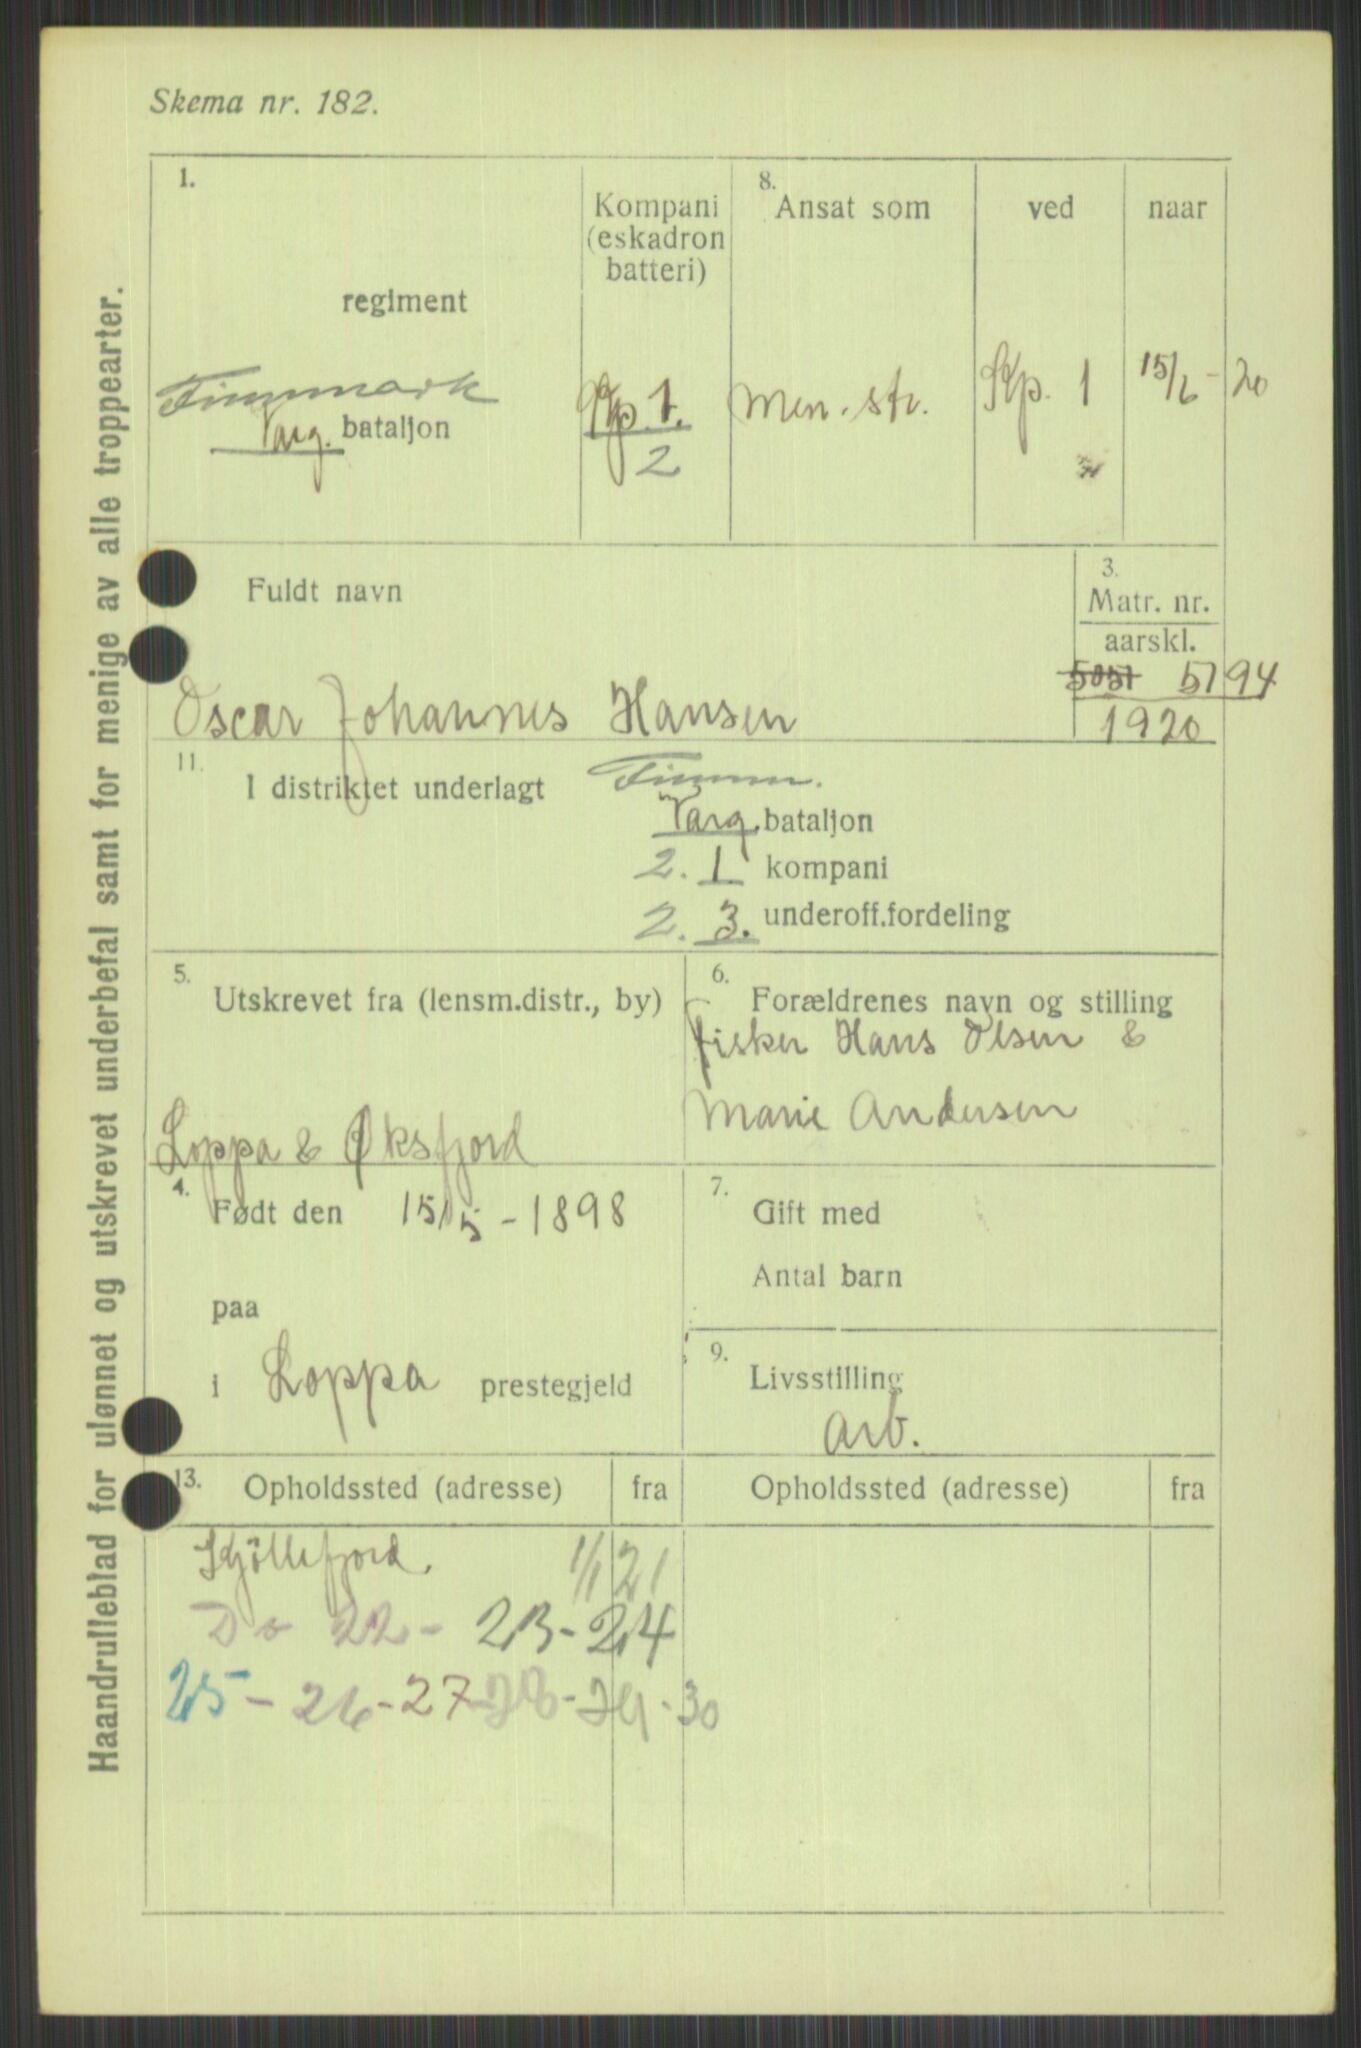 Skema nr. 182.
Haandrulleblad for ulønnet og utskrevet underbefal samt for menige av alle troppearter.
1.
regiment
Finnmark
Varg. bataljon
Kompani
(eskadron
batteri)
Kp. 1.
2
8.
Ansat som
Men. str.
ved
Kp. 1
naar
15/6 - 20
Fuldt navn
Oscar Johannes Hansen
3.
Matr. nr.
aarskl.
5051 5194
1920
11.
I distriktet underlagt Finnm.
Varg. bataljon
2. 1 kompani
2. 3. underoff.fordeling
5.
Utskrevet fra (lensm.distr., by)
Loppa & Øksfjord
6.
Forældrenes navn og stilling
fisker Hans Olsen &
Marie Andersen
4.
Født den 15/5 - 1898
paa
i Loppa prestegjeld
7.
Gift med
Antal barn
9.
Livsstilling
arb.
13.
Opholdssted (adresse) fra
Opholdssted (adresse) fra
Kjöllefjord. 1/1 21
Do 22 - 23 - 24
25 - 26 - 27 - 28 - 29 - 30